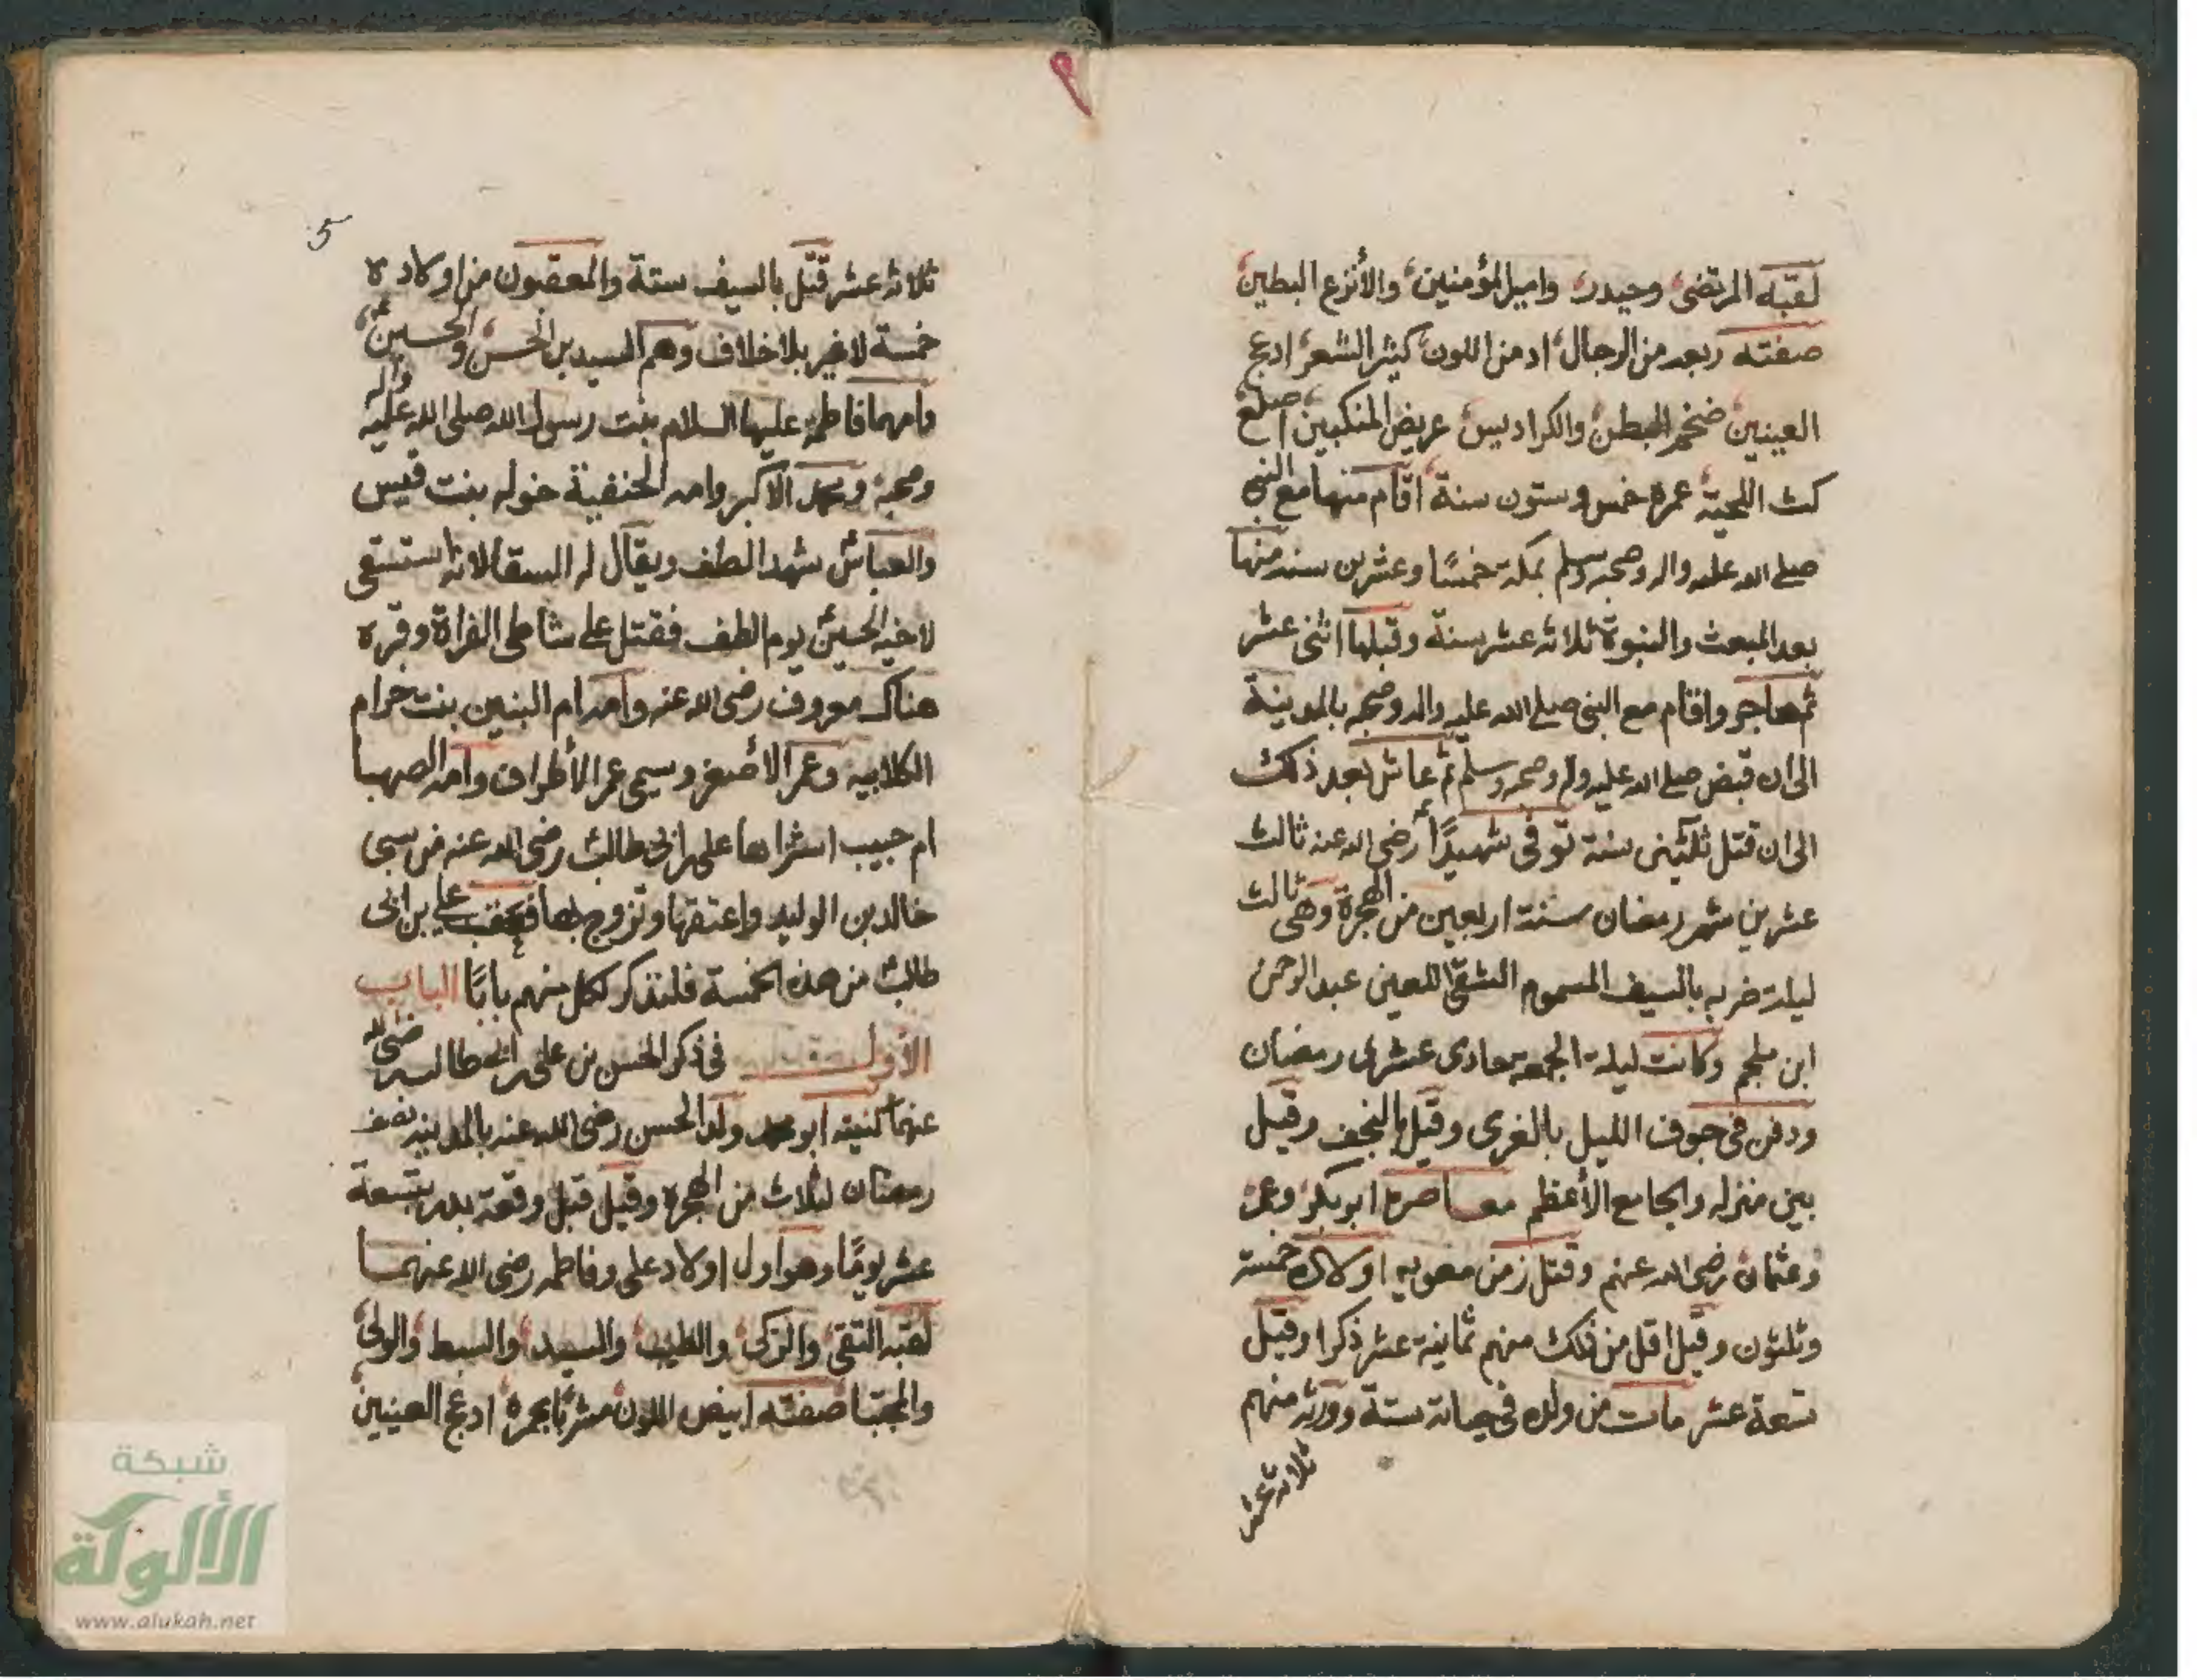 لقبه المرتضى وحيدر وامير المؤمنين والأنزع البطين
صفته ربعه من الرجال ادمن اللون كثير الشعر ادعج
العينين ضخم البطن والكراديس عريض المنكبين اصلع
كث اللحية عمره خمس وستون سنة اقام منها مع النبي
صلى الله عليه واله وصحبه وسلم بمكة خمسًا وعشرين سنه منها
بعد المبعث والنبوة ثلاثه عشر سنة وقبلها اثنى عشر
ثم هاجر واقام مع النبي صلى الله عليه واله وصحبه بالمدينة
الى ان قبض صلى الله عليه وصحبه وسلم ثم عاش بعد ذلك
الى ان قتل ثلثين سنة توفى شهيدًا رضى الله عنه ثالث
عشرين شهر رمضان سنة اربعين من الهجرة وهى ثالث
ليلة ضربه بالسيف المسموم الشقى اللعين عبد الرحمن
ابن ملجم وكانت ليلة الجمعه حادى عشرى رمضان
ودفن فى جوف الليل بالغرى وقيل بالنجف وقيل
بين منزله والجامع الأعظم معاصره ابوبكر وعمر
وعثمان رضى الله عنهم وقتل زمن معويه اولاده خمسة
وثلثون وقيل اقل من ذلك منهم ثمانية عشر ذكرا وقيل
تسعة عشر مات من ولده فى حياته ستة وورثه منهم
ثلاثة عشر
5
ثلاثه عشر قتل بالسيف ستة والمعقبون من اولاده
خمسة لاغير بلا خلاف وهم السيدين الحسن والحسين
وامهما فاطمه عليها السلام بنت رسول الله صلى الله عليه واله
وصحبه ومحمد الاكبر وامه الحنفية خوله بنت قيس
والعباس شهد الطف ويقال له السقا لانه استسقى
لاخيه الحسين يوم الطف فقتل على شاطى الفراة وقبره
هناك معروف رضى الله عنه وامه ام البنين بنت حرام
الكلابيه وعمر الأصغر وسيمى عمر الأطراف وامه الصهبا
ام حبيب اشتراها على ابن ابى طالب رضى الله عنه من سبى
خالد بن الوليد واعتقها وتزوج بها فعقب على بن ابى
طالب من هذه الخمسة فلنذكر لكل منهم بابًا الباب
الأول فى ذكر الحسن بن على بن ابى طالب رضى الله
عنهما كنيته ابو محمد ولد الحسن رضى الله عنه بالمدينه نصف
رمضان لثلاث من الهجرة وقيل قبل وقعة بدر بتسعة
عشر يومًا وهو اول اولاد على وفاطمه رضى الله عنهما
لقبه التقى والزكى والطيب والسيد والسبط والولى
والمجتبا صفته ابيض اللون مشربًا بحمرة ادعج العينين
شبكة
الألوكة
www.alukah.net